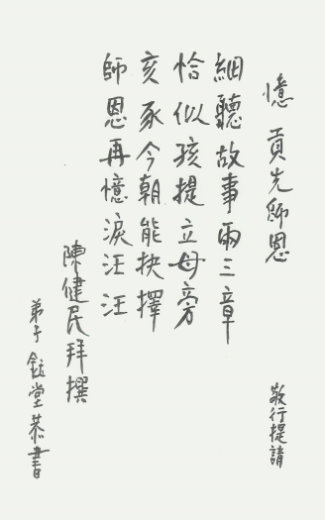 憶貢先師恩
敬行提請
細聽故事兩三章
恰似孩提立母旁
亥豕今朝能抉擇
師恩再憶淚汪汪
陳健民拜撰
弟子鈺堂恭書